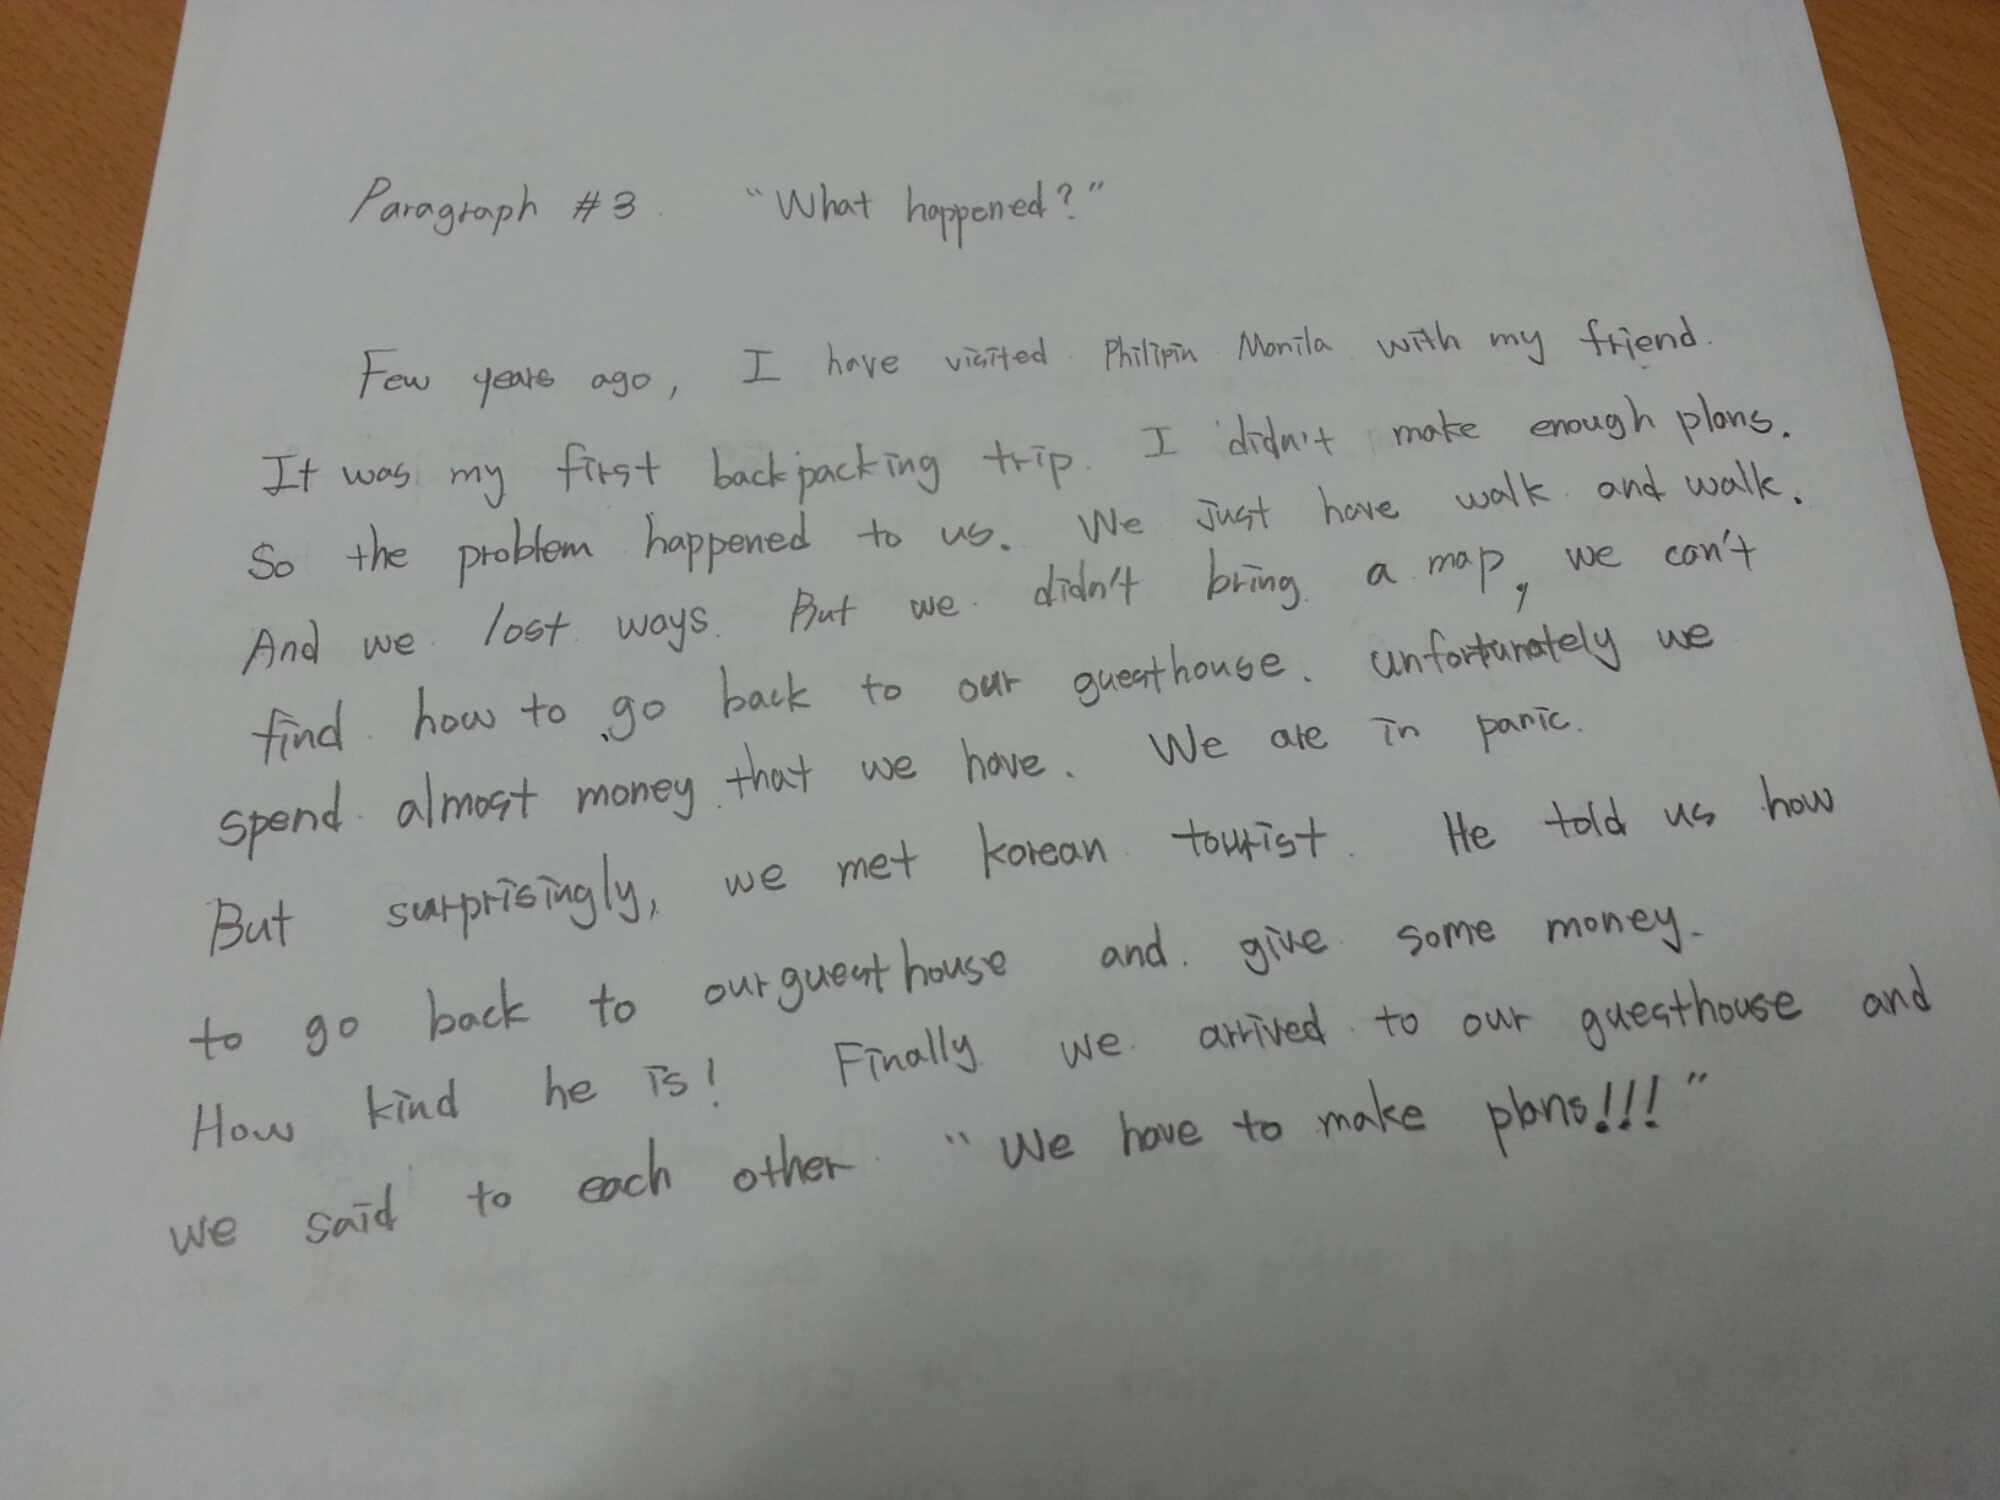 Paragraph #3. "What happened?"
Few years ago, I have visited Philipin Manila with my friend.
It was my first backpacking trip. I didn't make enough plans.
So the problem happened to us. We just have walk and walk.
And we lost ways. But we didn't bring a map, we can't
find how to go back to our guesthouse. unfortunately we
spend almost money that we have. We are in panic.
But surprisingly, we met korean tourist. He told us how
to go back to our guesthouse and give some money.
How kind he is! Finally we arrived to our guesthouse and
we said to each other "We have to make plans!!!"